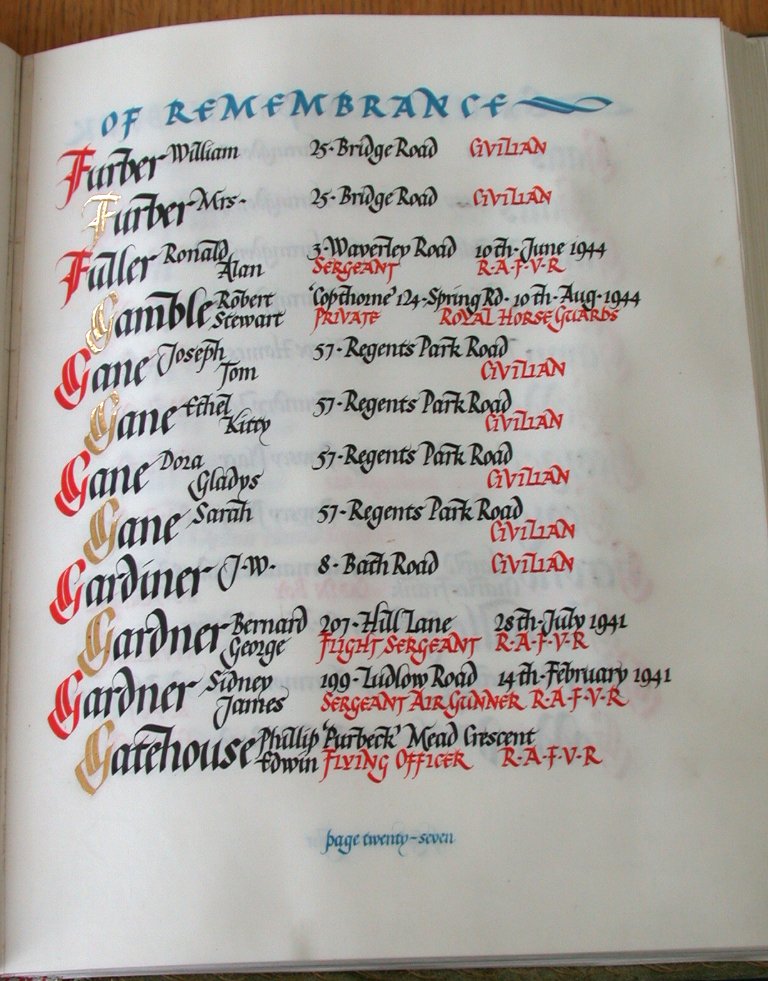 OF REMEMBRANCE
Furber William 25·Bridge Road CIVILIAN
Furber Mrs· 25·Bridge Road CIVILIAN
Fuller Ronald 3·Waverley Road 10th·June 1944
Alan SERGEANT R·A·F·V·R
Gamble Robert 'Copthorne' 124·Spring Rd· 10th·Aug·1944
Stewart PRIVATE ROYAL HORSE GUARDS
Gane Joseph 57·Regents Park Road
Tom CIVILIAN
Gane Ethel 57·Regents Park Road
Kitty CIVILIAN
Gane Dora 57·Regents Park Road
Gladys CIVILIAN
Gane Sarah 57·Regents Park Road
CIVILIAN
Gardiner J·W· 8·Bath Road CIVILIAN
Gardner Bernard 207·Hill Lane 28th·July 1941
George FLIGHT SERGEANT R·A·F·V·R
Gardner Sidney 199·Ludlow Road 14th·February 1941
James SERGEANT AIR GUNNER R·A·F·V·R
Gatehouse Phillip 'Purbeck' Mead Crescent
Edwin FLYING OFFICER R·A·F·V·R
page twenty-seven